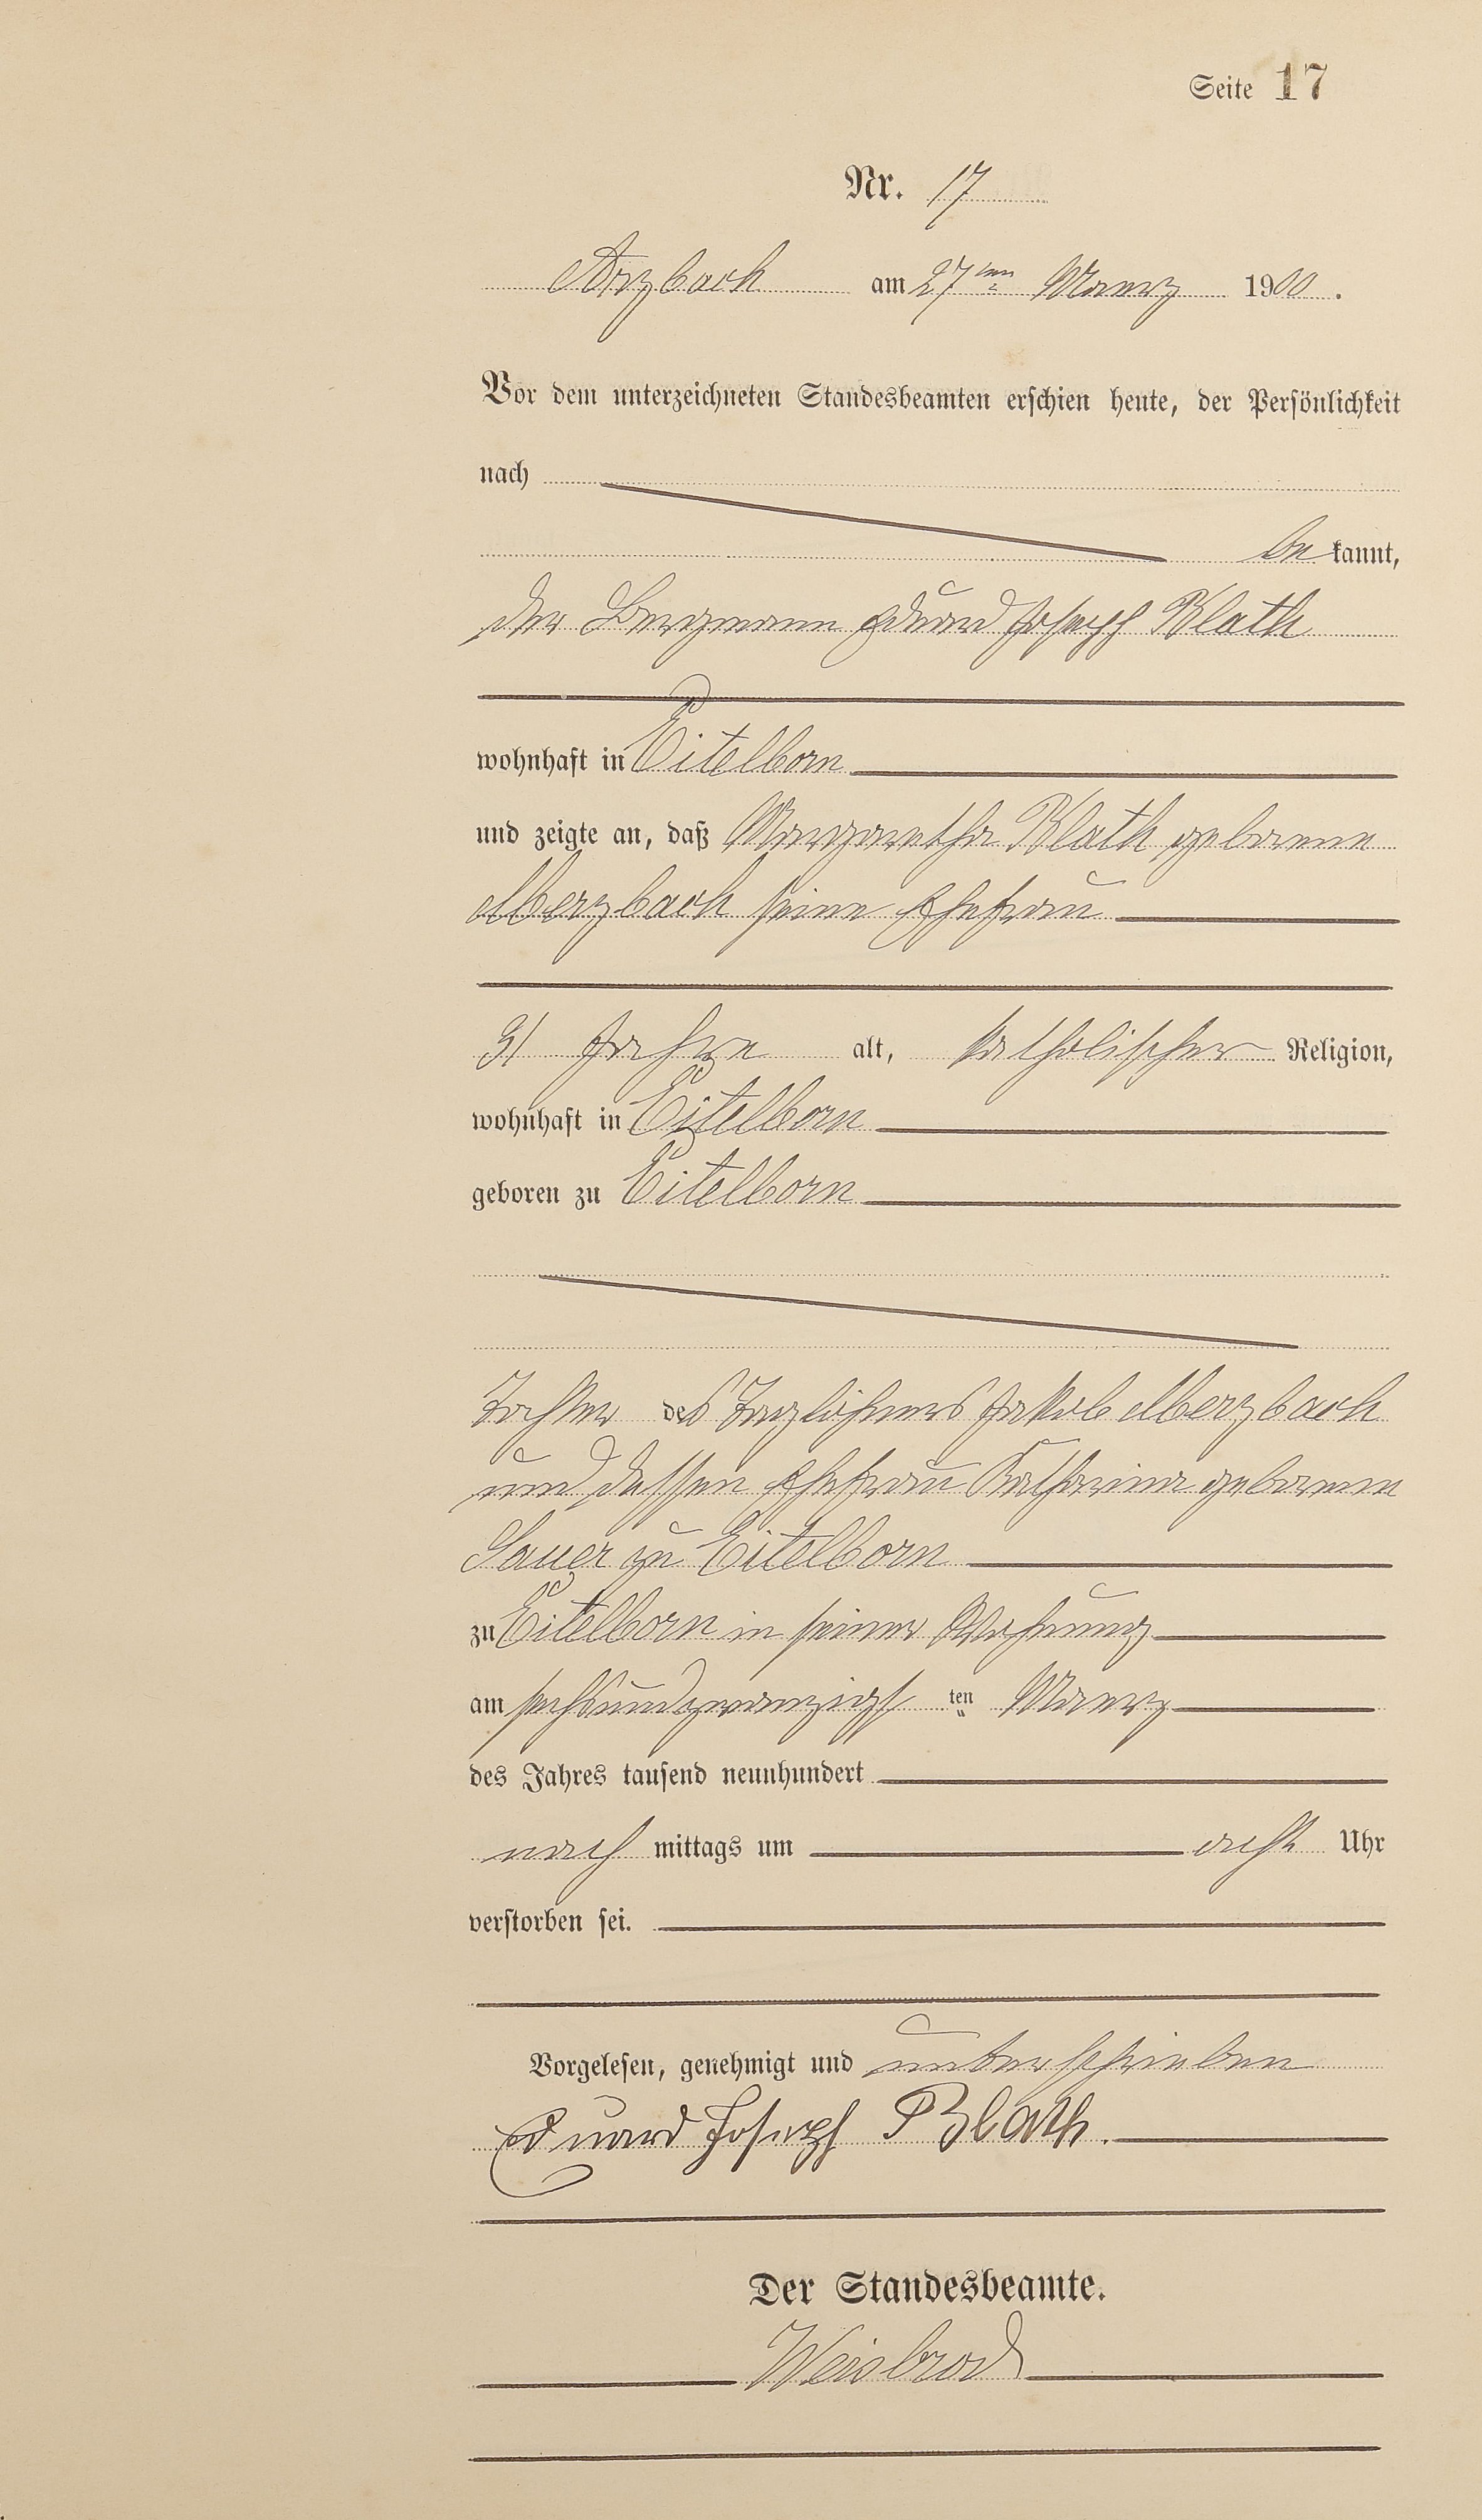 Seite 17
Nr. 17
Arzbach am 27ten Maerz 1900.
Vor dem unterzeichneten Standesbeamten erschien heute, der Persönlichkeit
nach
bekannt,
der Bergmann Eduard Joseph Blath
wohnhaft in Eitelborn
und zeigte an, daß Margaretha Blath geborene
Merzbach seine Ehefrau
31 Jahre alt, katholischer Religion,
wohnhaft in Eitelborn
geboren zu Eitelborn
Tochter des Taglöhners Jakob Merzbach
und dessen Ehefrau Katharina geborene
Sauer zu Eitelborn
zu Eitelborn in seiner Wohnung
am sechsundzwanzigsten Maerz
des Jahres tausend neunhundert
nachmittags um acht Uhr
verstorben sei.
Vorgelesen, genehmigt und unterschrieben
Eduard Joseph Blath.
Der Standesbeamte.
Weisbrod